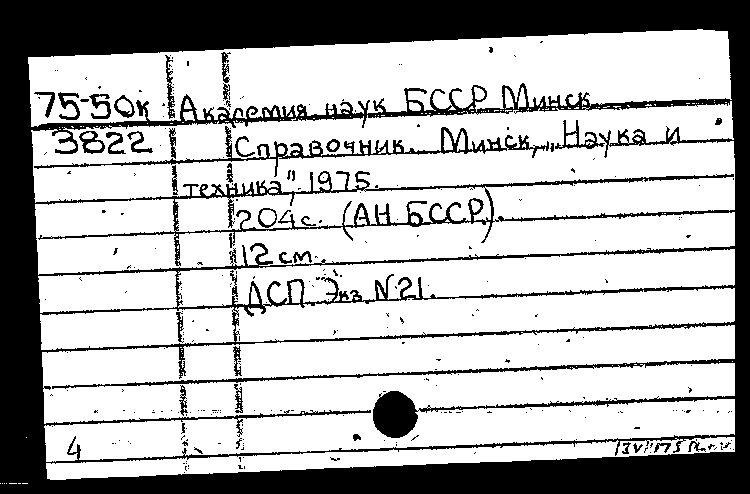 75-50к Академия наук БССР Минск
3822 Справочник. Минск, „Наука и
техника", 1975.
204с. (АН БССР).
12 см.
ДСП. Экз. N21.
4